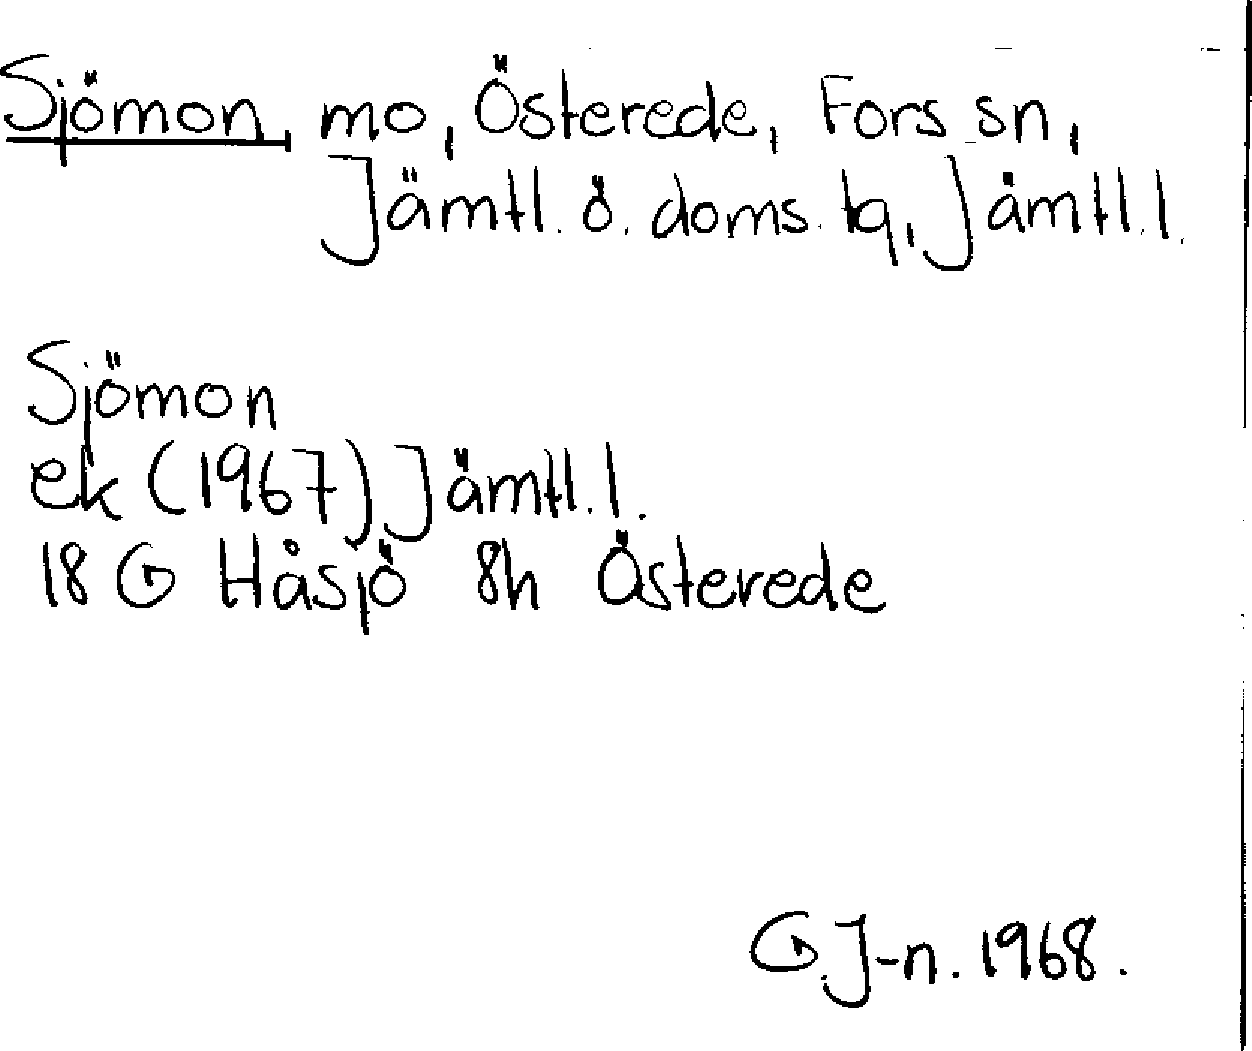 Sjömon, mo, Österede, Fors sn,
Jämtl. ö. doms. tg, Jämtl. l.
Sjömon
ek (1967) Jämtl. l.
18 G Håsjö 8h Österede
G.J-n. 1968.